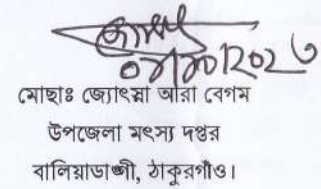 মোছাঃ জ্যোৎস্না আরা বেগম
উপজেলা মৎস্য দপ্তর
বালিয়াডাঙ্গী, ঠাকুরগাঁও।